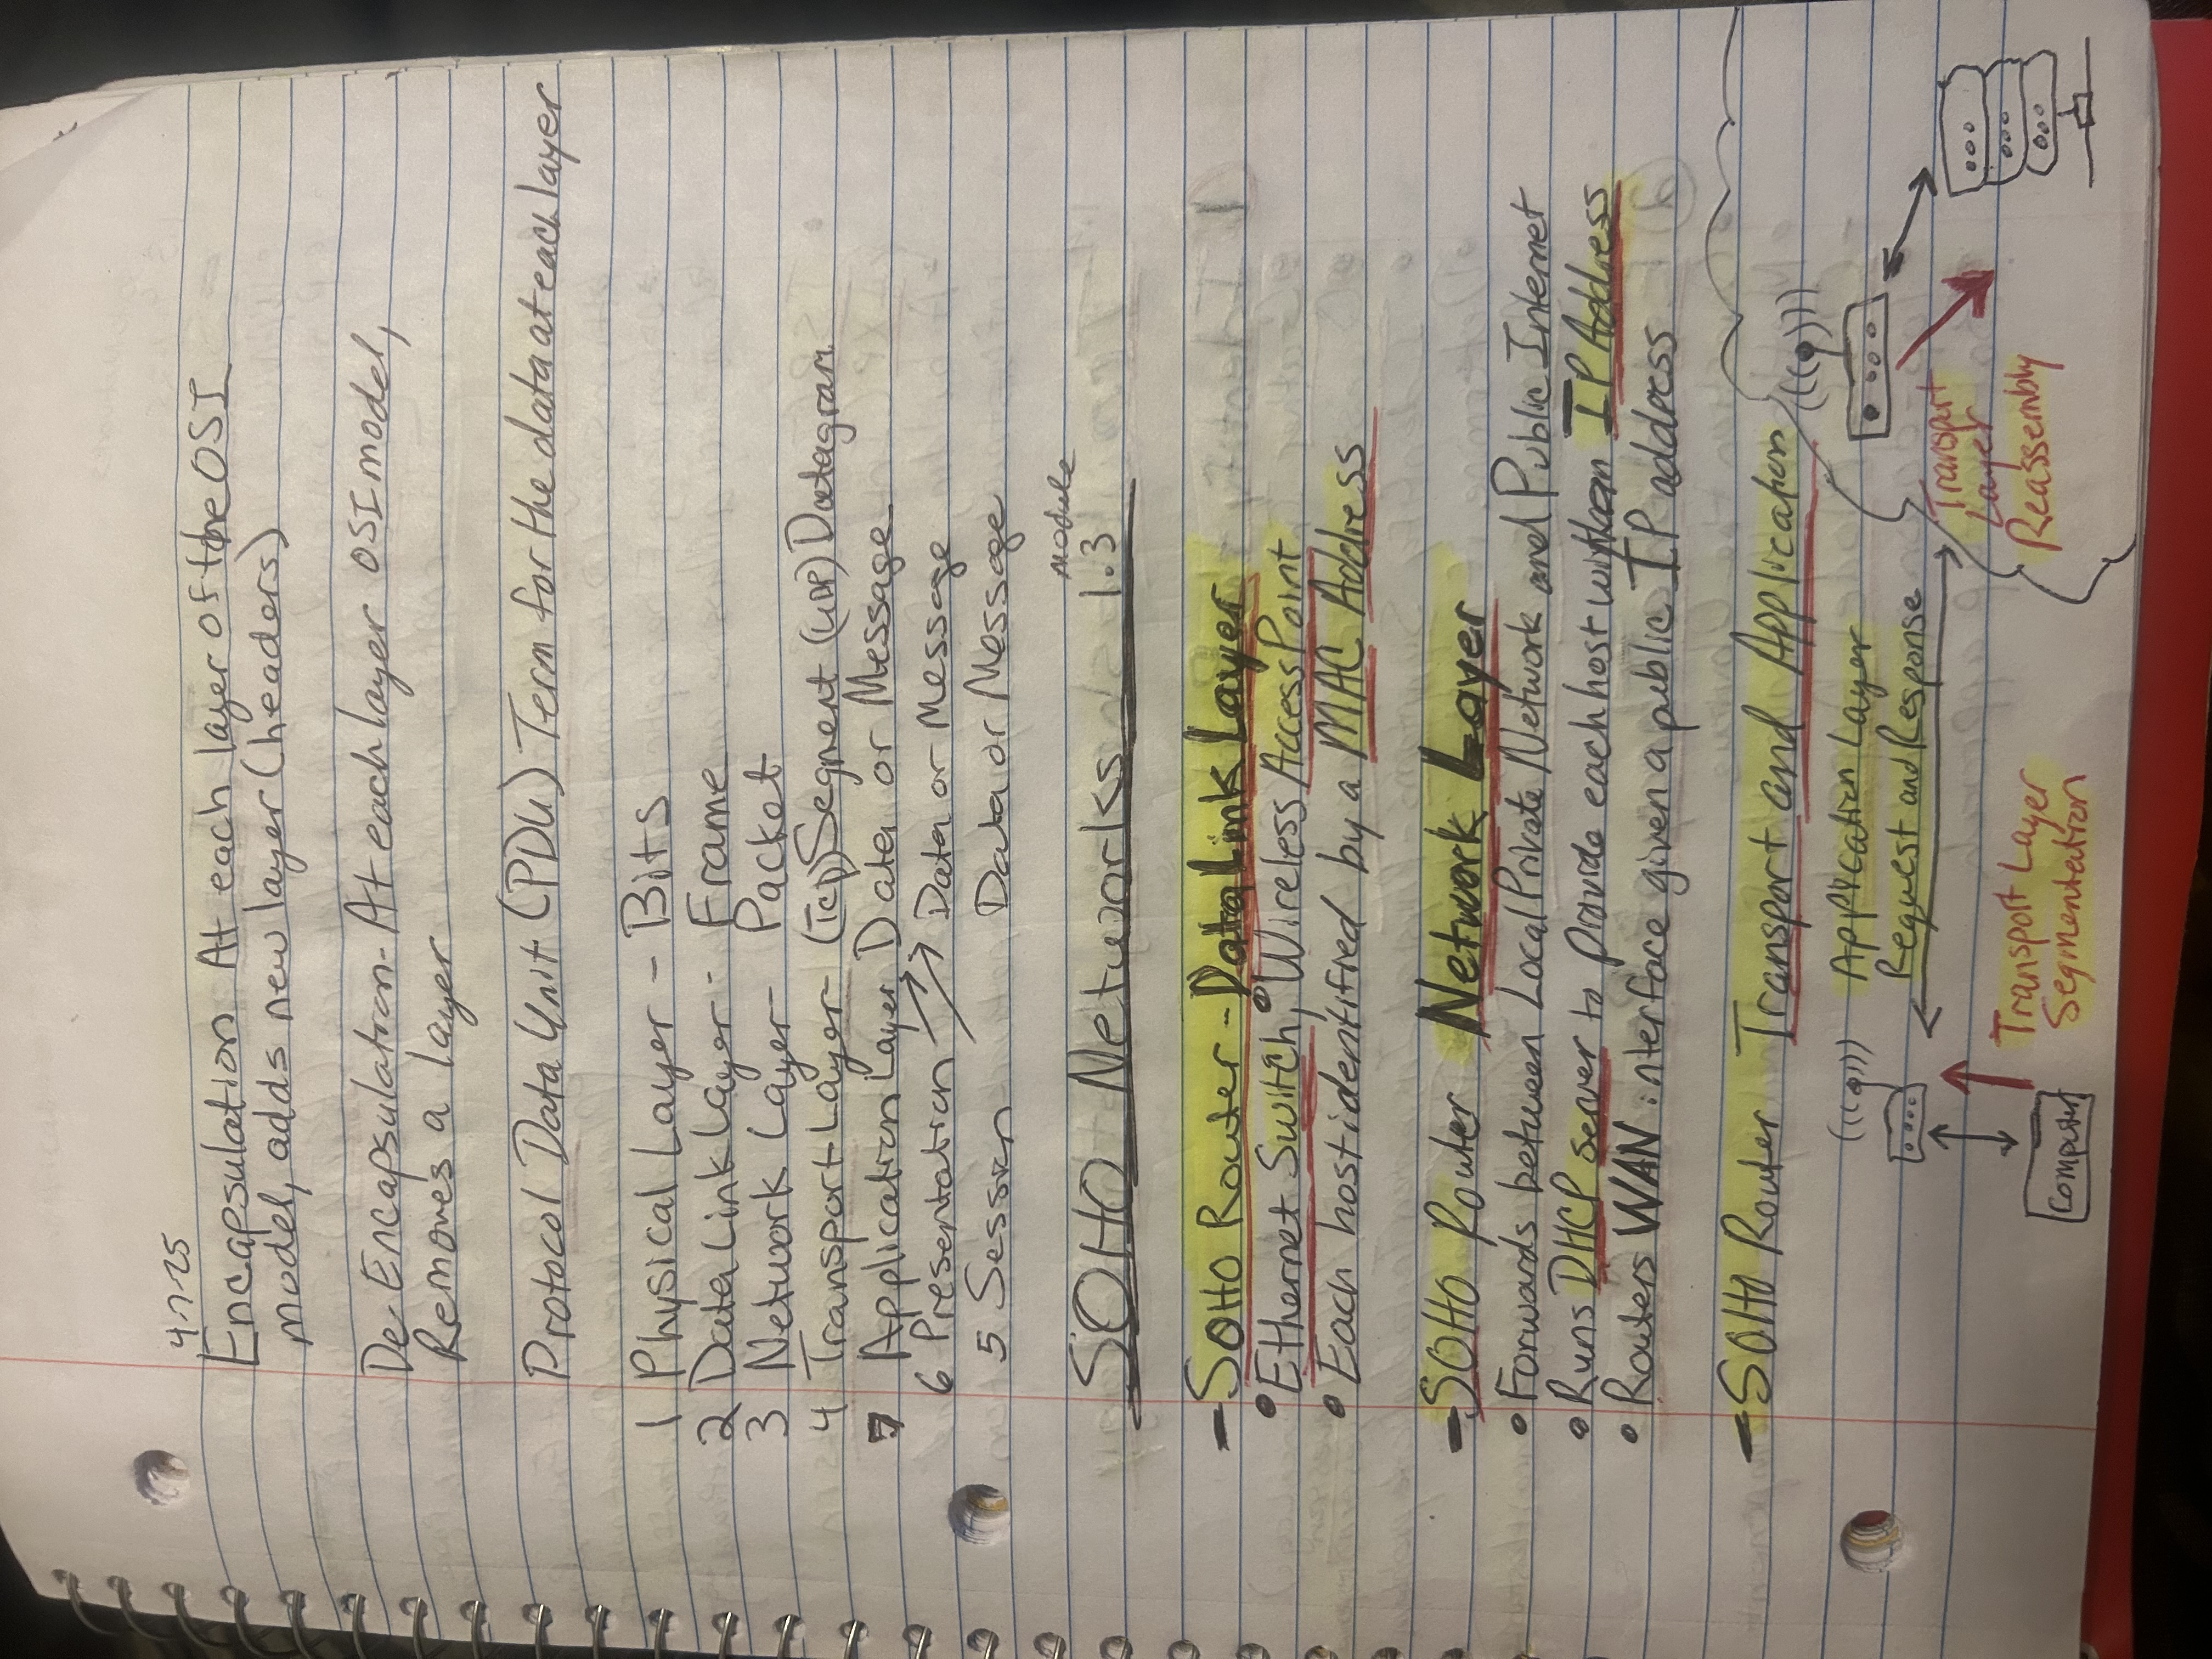 4-7-25
Encapsulation At each layer of the OSI
model, adds new layer (headers)
De-Encapsulation - At each layer OSI model,
Removes a layer
Protocol Data Unit (PDU) Term for the data at each layer
1 Physical Layer - Bits
2 Data Link Layer - Frame
3 Network Layer - Packet
4 Transport Layer - (TCP) Segment (UDP) Datagram
7 Application Layer Data or Message
6 Presentation Data or Message
5 Session Data or Message
SOHO Networks module 1.3
- SOHO Router - Data Link Layer
• Ethernet Switch, • Wireless Access Point
• Each host identified by a MAC Address
- SOHO Router Network Layer
• Forwards between Local Private Network and Public Internet
• Runs DHCP server to provide each host with an IP Address
• Routers WAN interface given a public IP address
- SOHO Router Transport and Application
Application Layer
Request and Response
Transport
Layer
Reassembly
Transport Layer
Segmentation
Computer